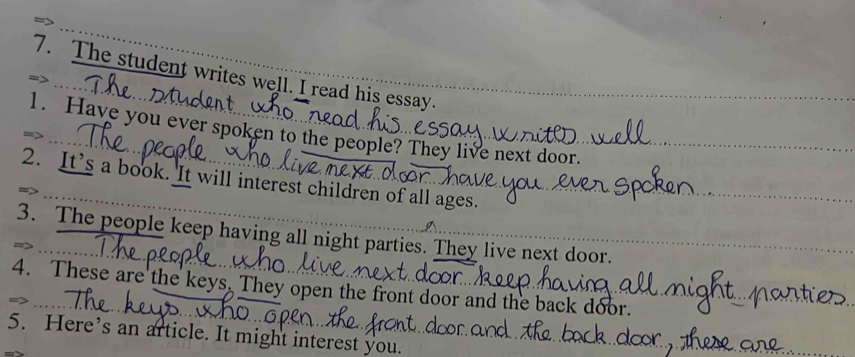 =>
7. The student writes well. I read his essay.
=> The student who read his essay writes well
1. Have you ever spoken to the people? They live next door.
=> The people who live next door have you ever spoken
2. It's a book. It will interest children of all ages.
=>
3. The people keep having all night parties. They live next door.
=> The people who live next door keep having all night parties
4. These are the keys. They open the front door and the back door.
=> The keys who open the front door and the back door, these are
5. Here's an article. It might interest you.
=>